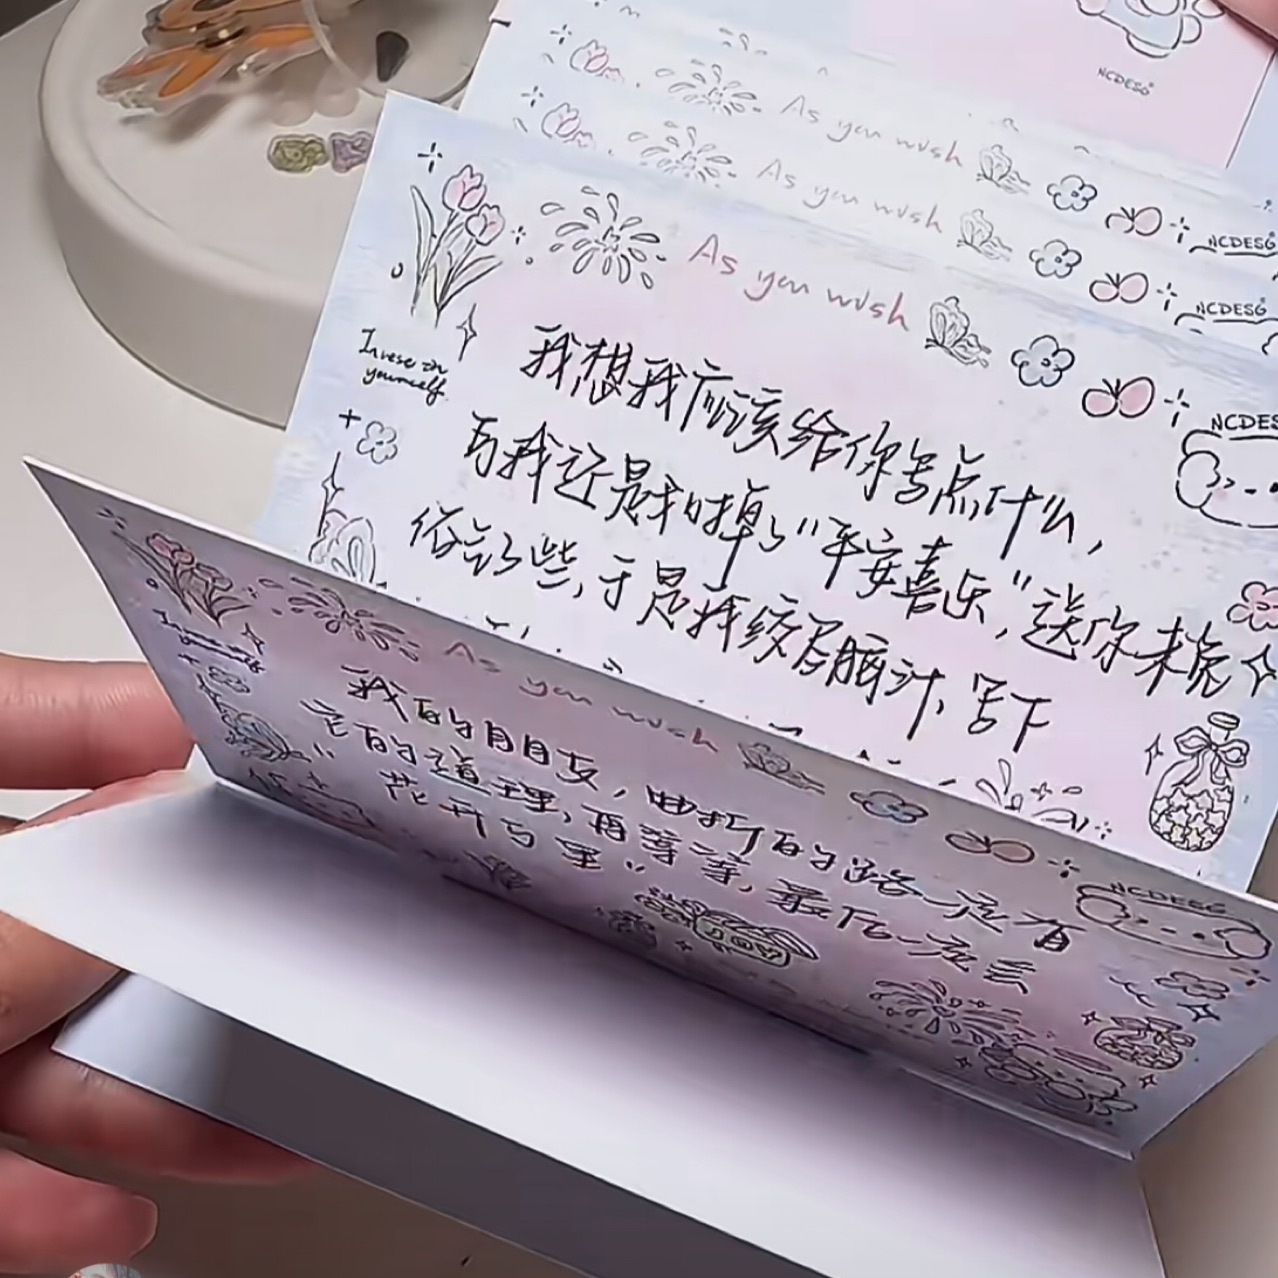 NCDESG
As you wish
NCDESG
As you wish
NCDESG
As you wish
NCDESG
Invest in
yourself
我想我应该给你写点什么,
可我还是划掉了"平安喜乐",送你未免
俗气了些,于是我绞尽脑汁,写下
As you wish
NCDESG
我的朋友,曲折的路一定有
它的道理,再等等,最后一定会
"花开万里"